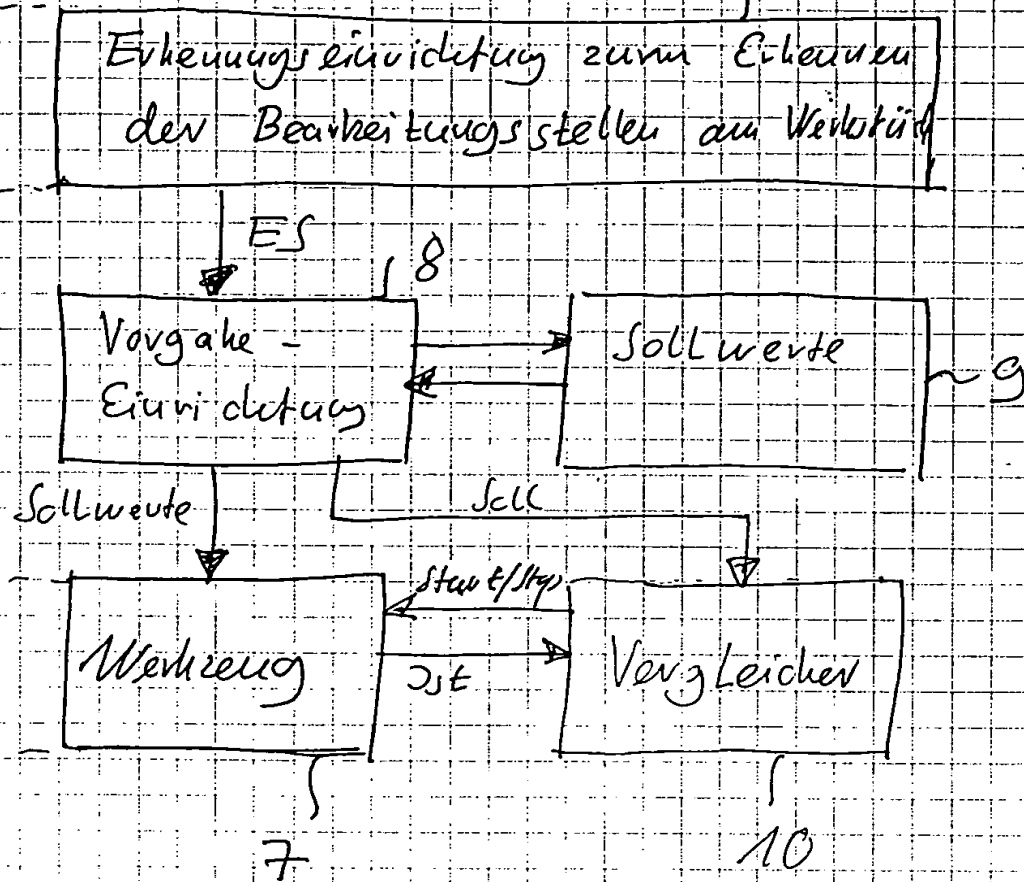 Erkennungseinrichtung zum Erkennen
der Bearbeitungsstellen am Werkstück
ES
8
Vorgabe -
Einrichtung
Sollwerte
9
Sollwerte
Soll
Start/Stop
Werkzeug
Ist
Vergleicher
7
10